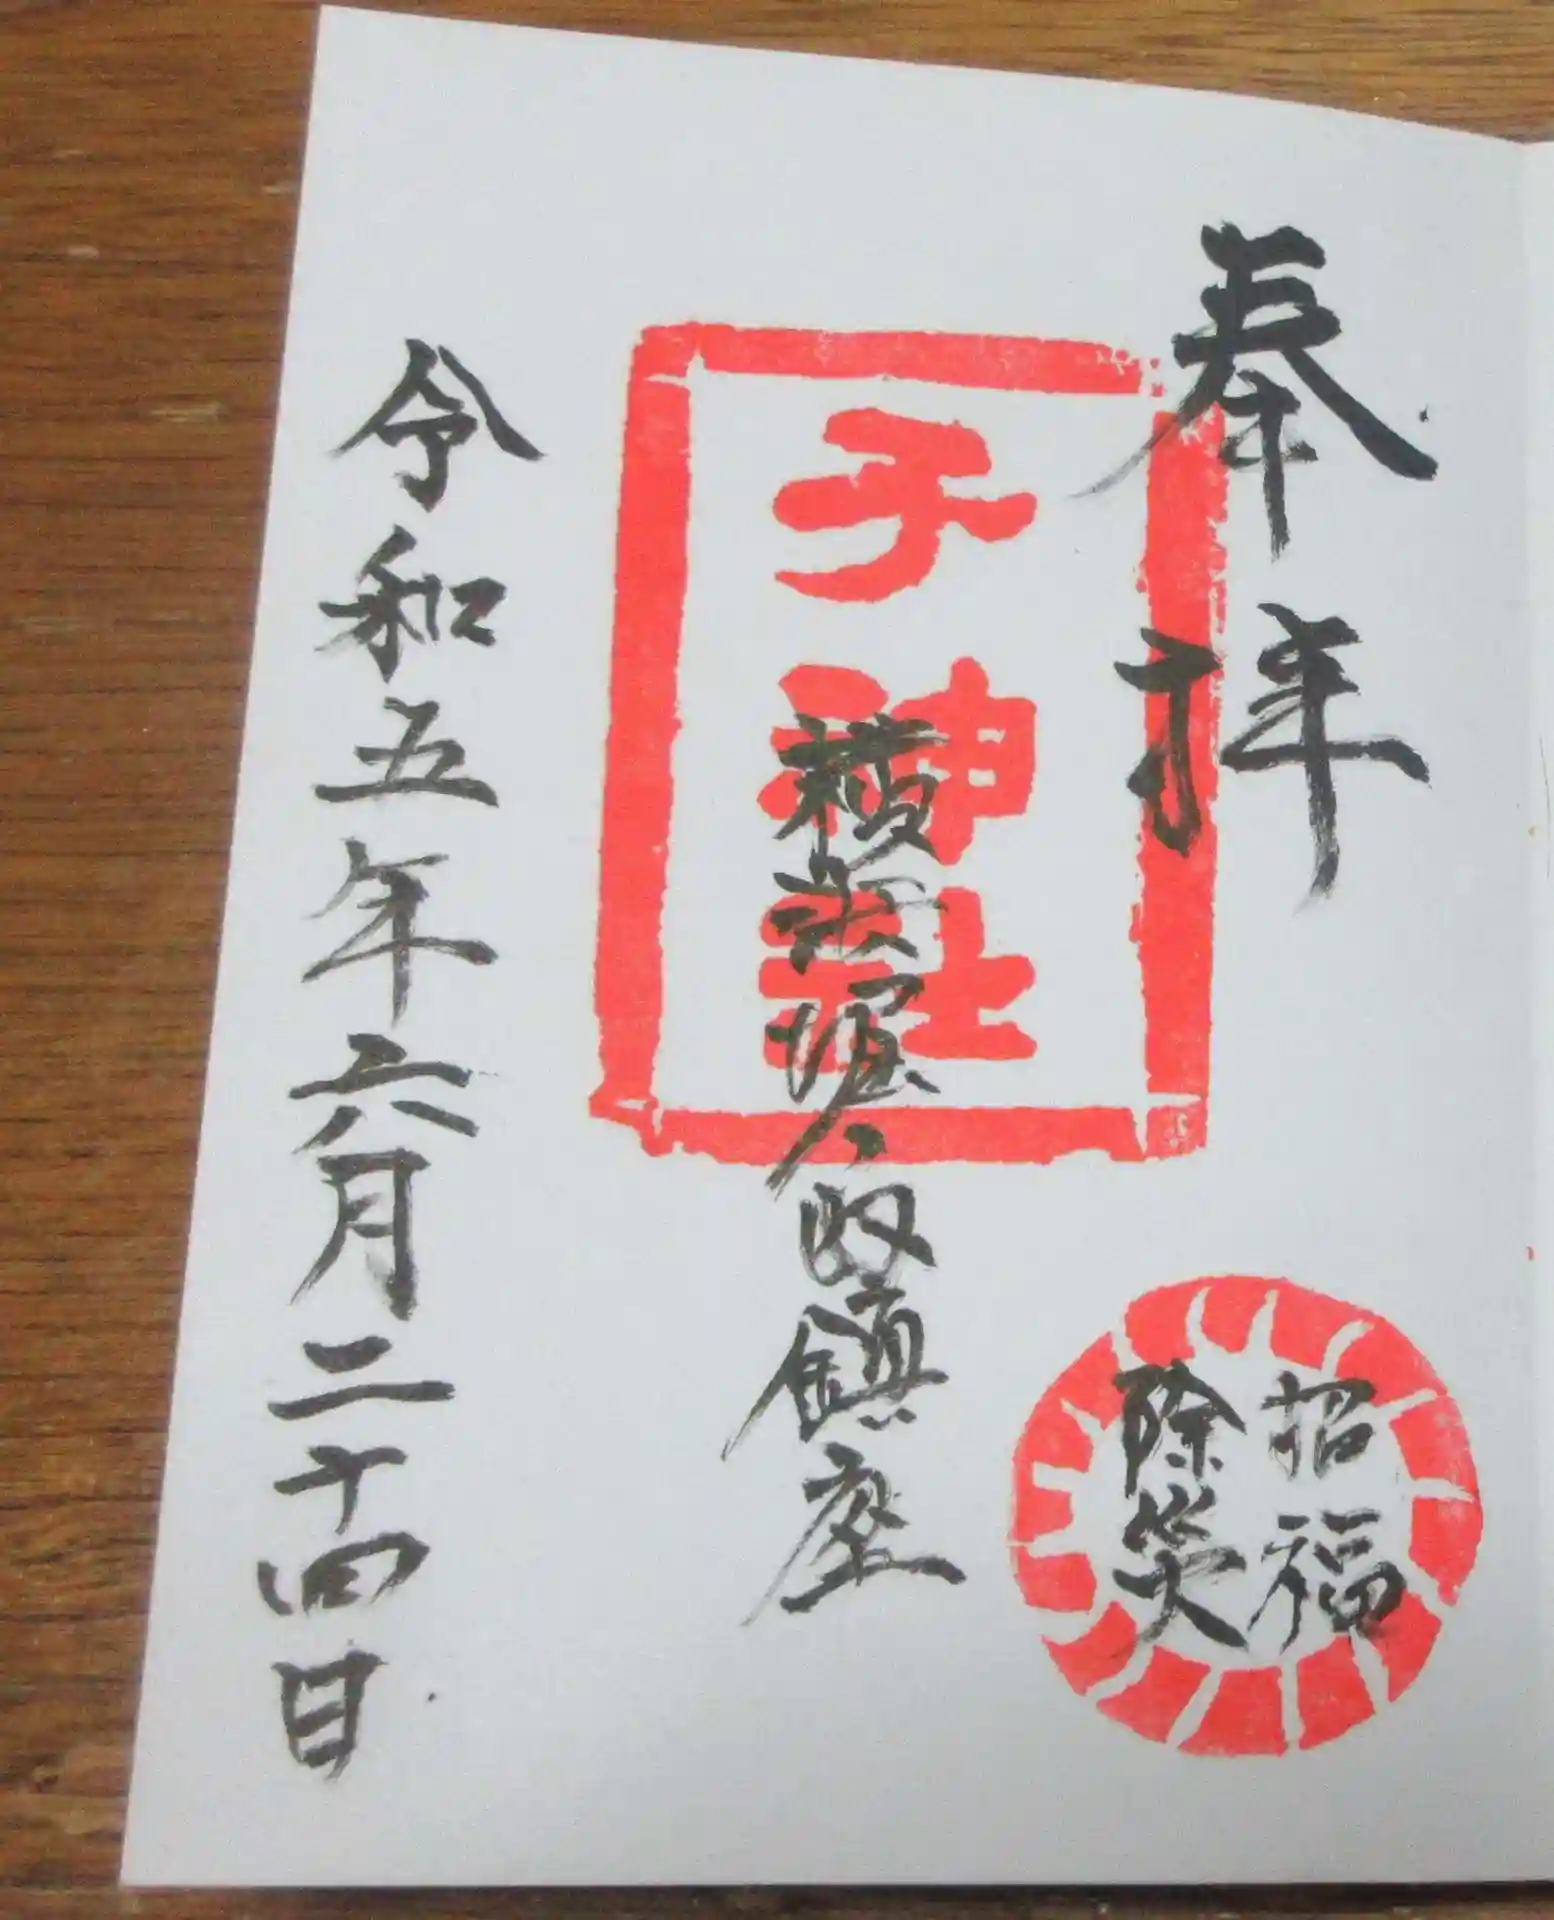 奉拝
子神社
鎮座
招福
除災
令和五年六月二十四日